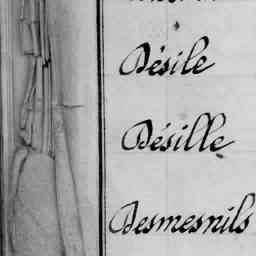 Désile
Désille
Desmesnils